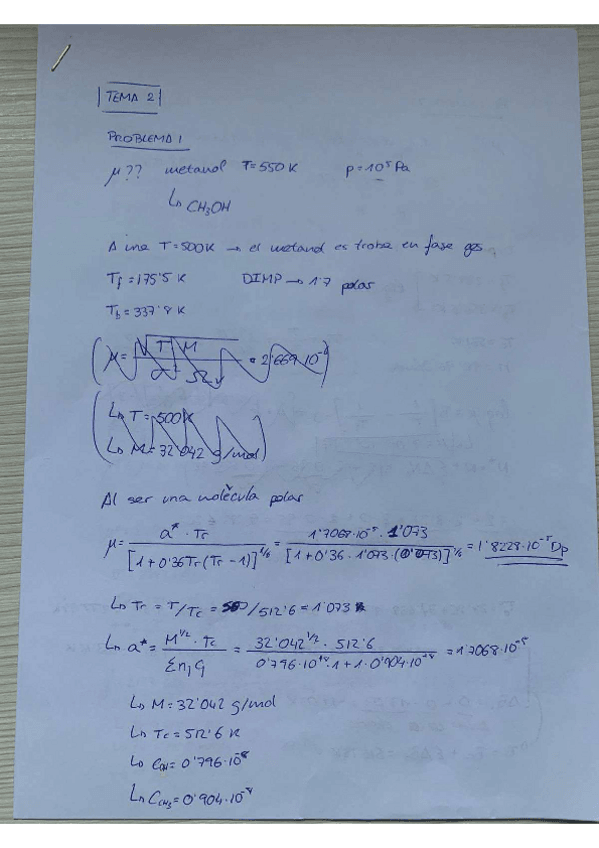 TEMA 2
PROBLEMA 1
μ?? metanol T=550K p=10⁵ Pa
↳ CH₃OH
A una T=500K → el metanol es troba en fase gas
T_f = 175'5 K DIMP → 1'7 polar
T_b = 337'8 K
μ = √T M
σ² Ω_v = 2'669·10⁻⁶
↳ T = 500K
↳ M = 32'042 g/mol
Al ser una molècula polar
μ = a* · Tr / [1+0'36Tr(Tr-1)]^1/6 = 1'7068·10⁻⁵ · 1'073 / [1+0'36·1'073·(0'073)]^1/6 = 1'8228·10⁻⁵ Dp
↳ Tr = T/Tc = 550/512'6 = 1'073
↳ a* = M^1/2 · Tc / Σ n_i C_i = 32'042^1/2 · 512'6 / 0'796·10⁺⁸·1+1·0'904·10⁻⁸ = 1'7068·10⁻⁵
↳ M = 32'042 g/mol
↳ Tc = 512'6 K
↳ C_OH = 0'796·10⁻⁸
↳ C_CH₃ = 0'904·10⁻⁸